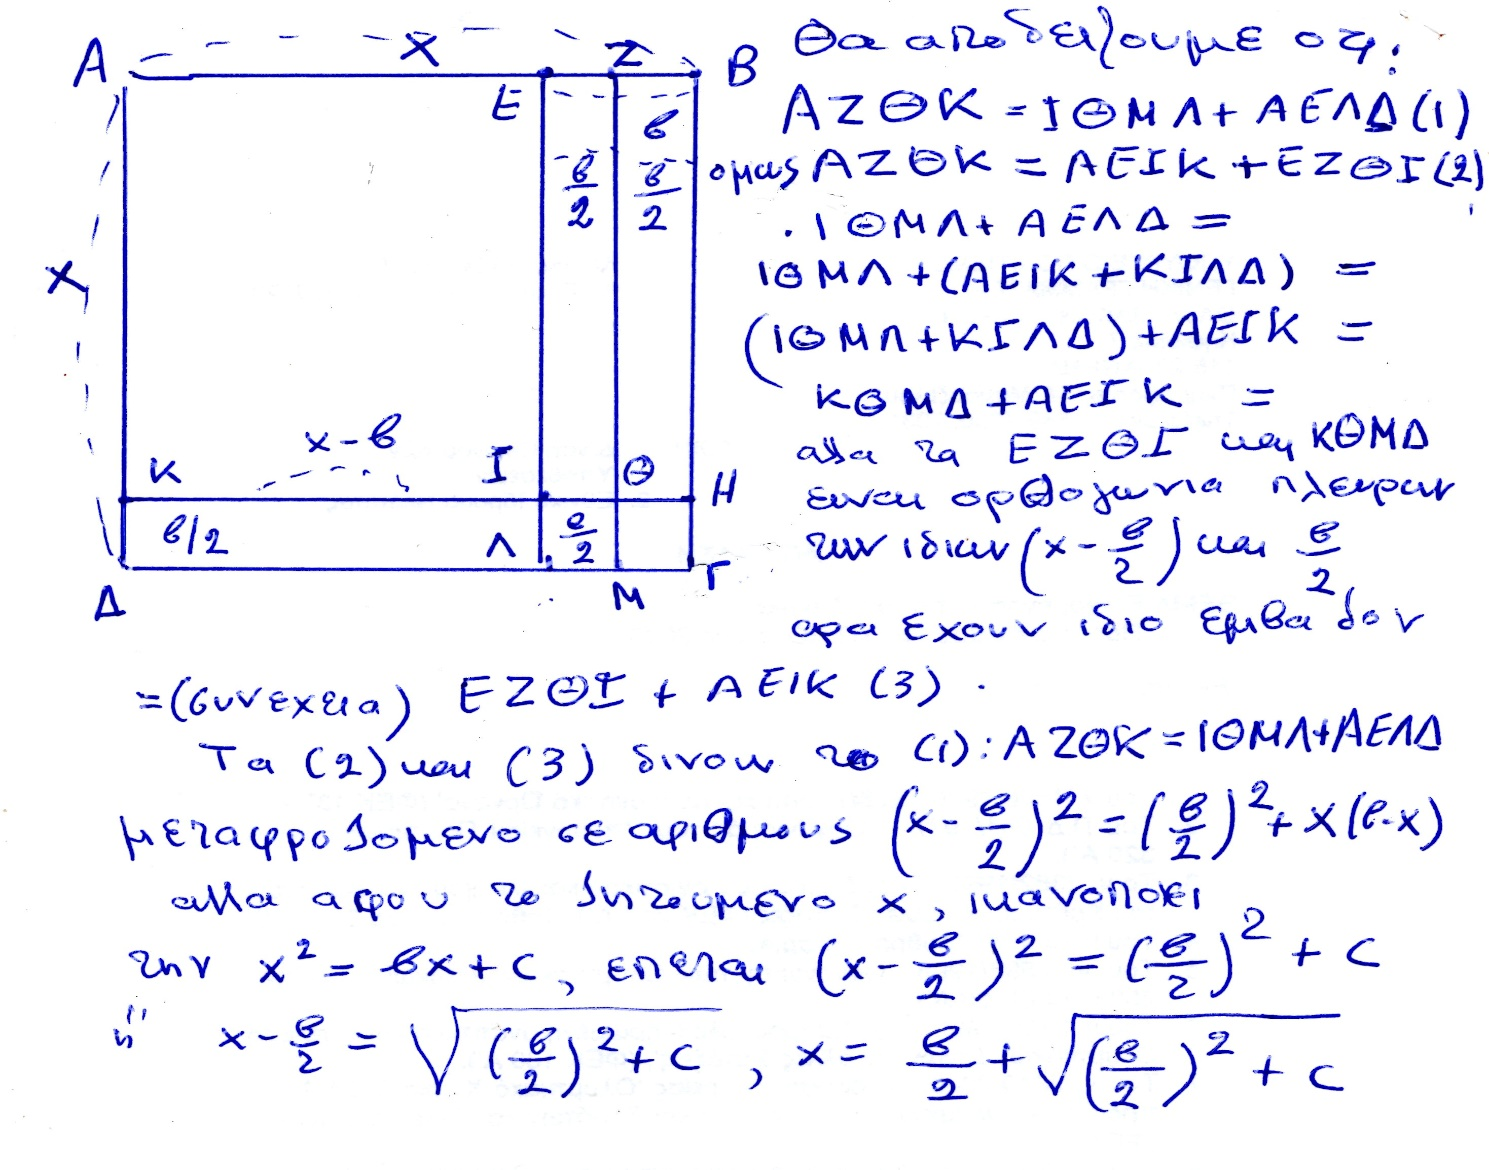 Α x Ζ Β
Ε
β
β/2 β/2
x
x-β
Κ Ι Θ Η
β/2 Λ β/2
Δ Μ Γ
Θα αποδειξουμε οτι:
ΑΖΘΚ = ΙΘΜΛ + ΑΕΛΔ (1)
ομως ΑΖΘΚ = ΑΕΙΚ + ΕΖΘΙ (2)
. ΙΘΜΛ + ΑΕΛΔ =
ΙΘΜΛ + (ΑΕΙΚ + ΚΙΛΔ) =
(ΙΘΜΛ + ΚΙΛΔ) + ΑΕΙΚ =
ΚΘΜΔ + ΑΕΙΚ =
αλλα τα ΕΖΘΙ και ΚΘΜΔ
ειναι ορθογωνια πλευρων
των ιδιων (x - β/2) και β/2
αρα εχουν ιδιο εμβαδον
= (συνεχεια) ΕΖΘΙ + ΑΕΙΚ (3).
Τα (2) και (3) δινουν το (1): ΑΖΘΚ = ΙΘΜΛ + ΑΕΛΔ
μεταφραζομενο σε αριθμους (x - β/2)² = (β/2)² + x(β-x)
αλλα αφου το ζητουμενο x, ικανοποιει
την x² = βx + c, επεται (x - β/2)² = (β/2)² + c
η" x - β/2 = √(β/2)² + c , x = β/2 + √(β/2)² + c